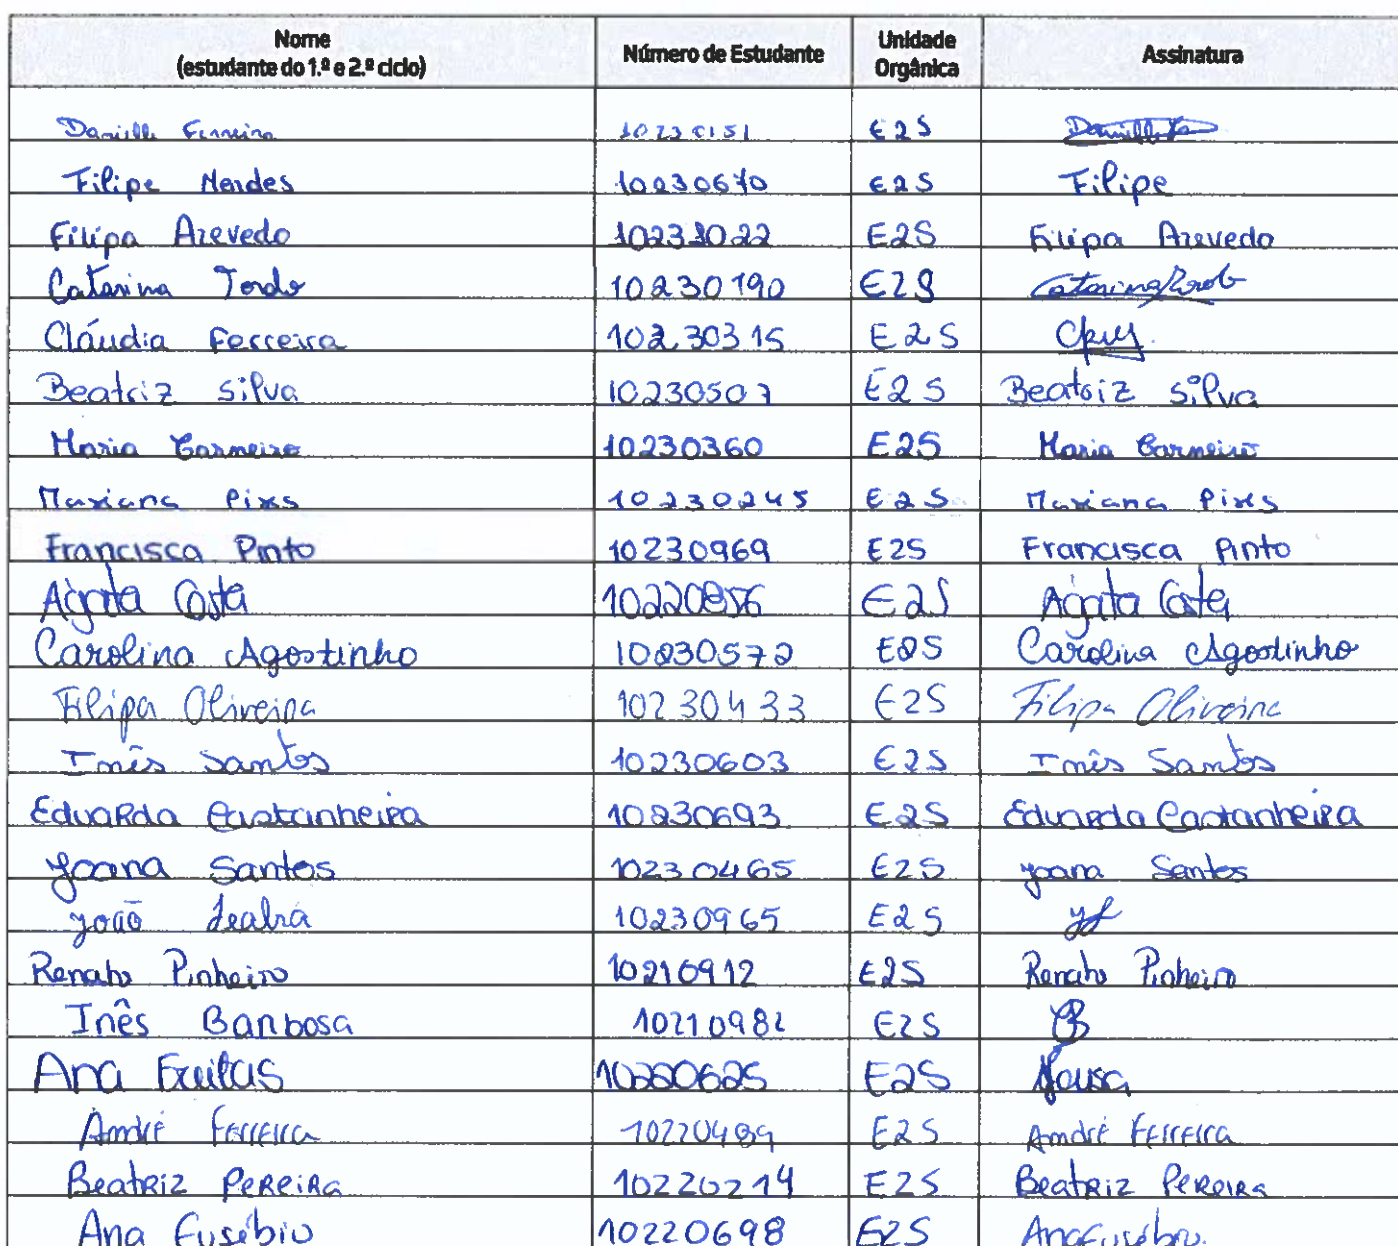 Nome (estudante do 1.º e 2.º ciclo) Número de Estudante Unidade Orgânica Assinatura
Danielle Ferreira E2S
Filipe Mendes 10230670 E2S Filipe
Filipa Azevedo 10231022 E2S Filipa Azevedo
Catarina Tordo 10230190 E2S
Cláudia Ferreira 10230315 E2S
Beatriz Silva 10230507 E2S Beatriz Silva
Maria Carneiro 10230360 E2S Maria Carneiro
Mariana Pires 10230245 E2S Mariana Pires
Francisca Pinto 10230969 E2S Francisca Pinto
Ágata Costa 10220856 E2S Ágata Costa
Carolina Agostinho 10230572 E2S Carolina Agostinho
Filipa Oliveira 10230433 E2S Filipa Oliveira
Inês Santos 10230603 E2S Inês Santos
Eduarda Castanheira 10230693 E2S Eduarda Castanheira
Joana Santos 10230465 E2S Joana Santos
João Seabra 10230965 E2S
Renato Pinheiro 10210912 E2S Renato Pinheiro
Inês Barbosa 10210982 E2S
Ana Freitas 10220625 E2S Sousa
André Ferreira 10220489 E2S André Ferreira
Beatriz Pereira 10220214 E2S Beatriz Pereira
Ana Eusébio 10220698 E2S Ana Eusébio